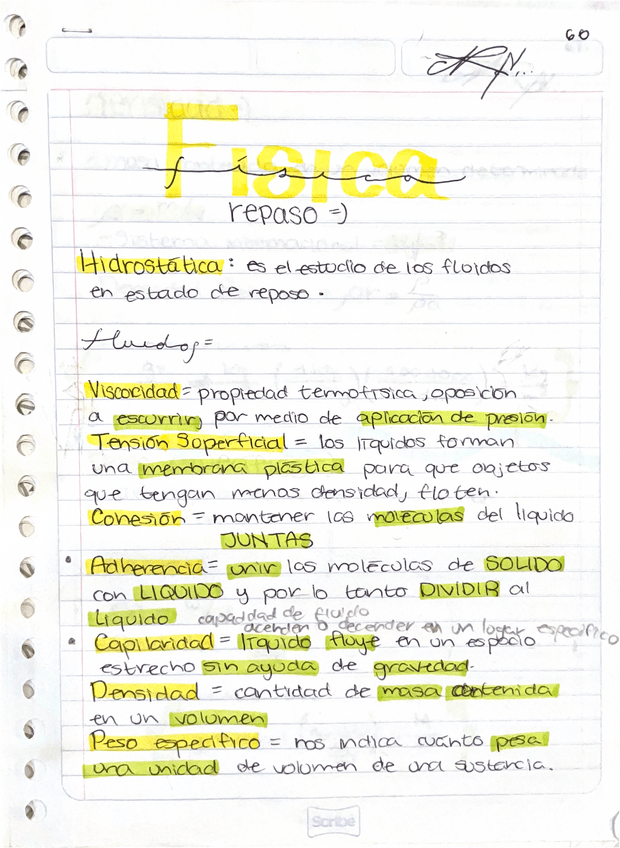 60
Física
física
repaso =)
Hidrostática: es el estudio de los fluidos
en estado de reposo.
fluidos=
Viscocidad= propiedad termofísica, oposición
a escurrir, por medio de aplicación de presión.
Tensión Soperficial = los líquidos forman
una membrana plástica para que objetos
que tengan menos densidad, floten.
Cohesión = mantener las moléculas del líquido
JUNTAS
• Adherencia= unir las moléculas de SOLIDO
con LIQUIDO y por lo tanto DIVIDIR al
Líquido capacidad de fluido
acenden o decender en un logar especifico
• Capilaridad = líquido fluye en un espacio
estrecho sin ayuda de gravedad.
Densidad = cantidad de masa contenida
en un volumen
Peso especifico = nos indica cuánto pesa
una unidad de volumen de una sustancia.
Scribe